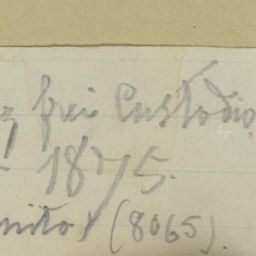 frei Custodio
1875.
nito) (8065).